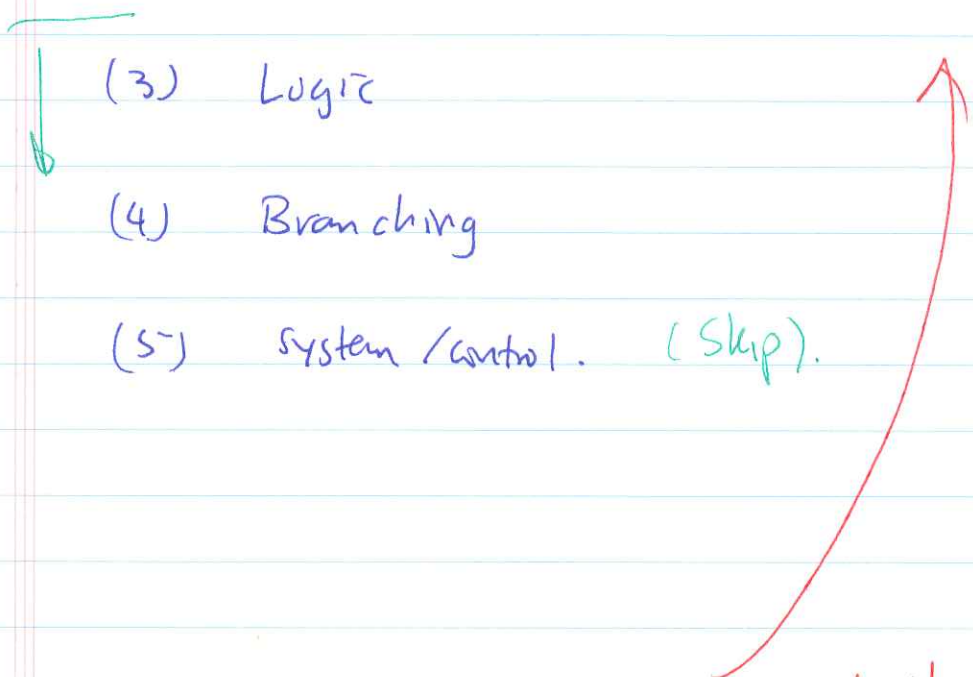 (3) Logic
(4) Branching
(5) system/control. (Skip).